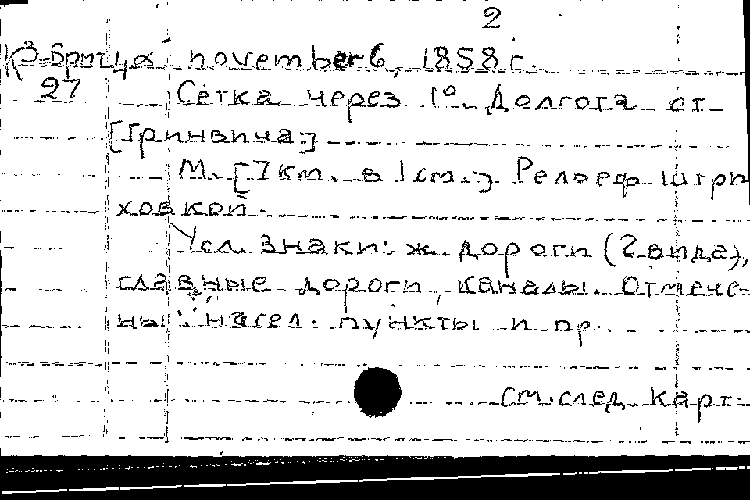 2
К3-Братца november 6, 1858 г.
27 Сетка через 1°. Долгота от
[Гринвича.]
М. [7 км. в 1 см.] Рельеф штри
ховкой.
Усл. знаки: ж. дороги (2 вида),
главные дороги, каналы. Отмече-
ны: насел. пункты и пр.
см. след. карт.